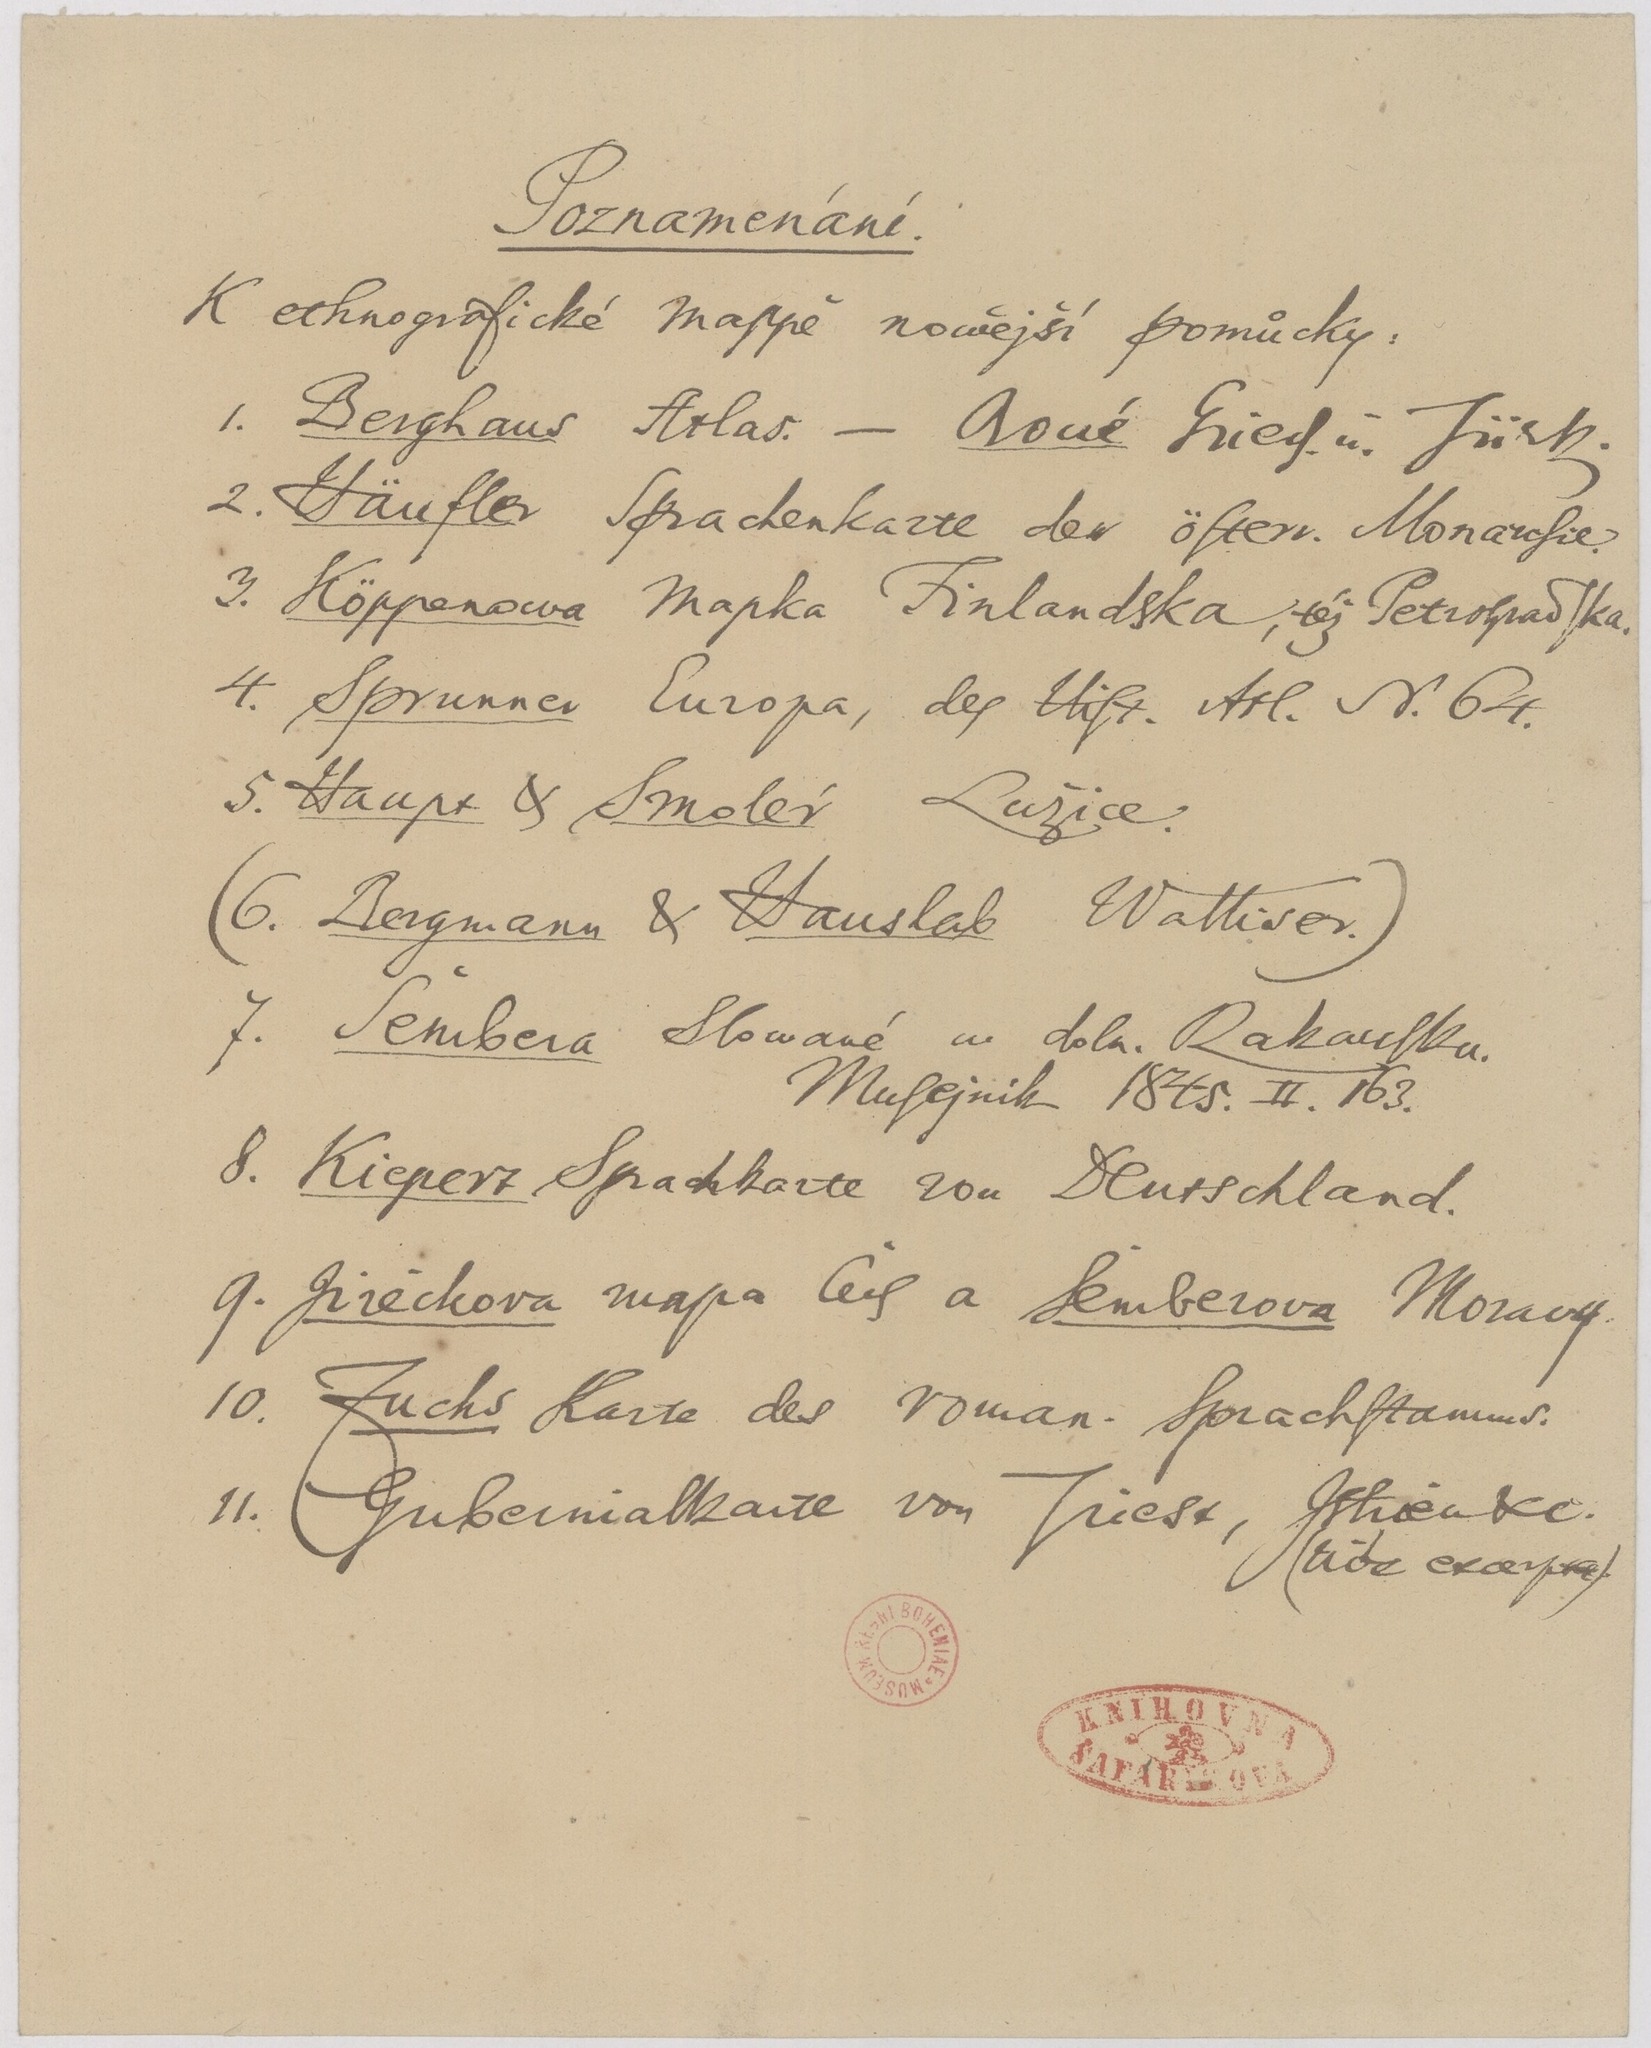 Poznamenání.
K ethnografické mappě nowější pomůcky:
1. Berghaus Atlas. — Boué Griech. u. Türk.
2. Häufler Sprachenkarte der österr. Monarchie.
3. Köppenowa mapka Finlandska, též Petrohradska.
4. Sprunner Europa, des Hist. Atl. N. 64.
5. Haupt & Smoleŕ Lužice.
(6. Bergmann & Hauslab Walliser.)
7. Šembera Slowané w doln. Rakausku.
Musejnik 1845. II. 163.
8. Kiepert Sprachkarte von Deutschland.
9. Jirečkova mapa Čech a Šemberova Moravy.
10. Fuchs Karte des roman. Sprachstamms.
11. Gubernialkarte von Triest, Istrien &c.
(viz excerpta)
MUSEUM REGNI BOHEMIAE
KNIHOVNA
ŠAFAŘÍKOVA